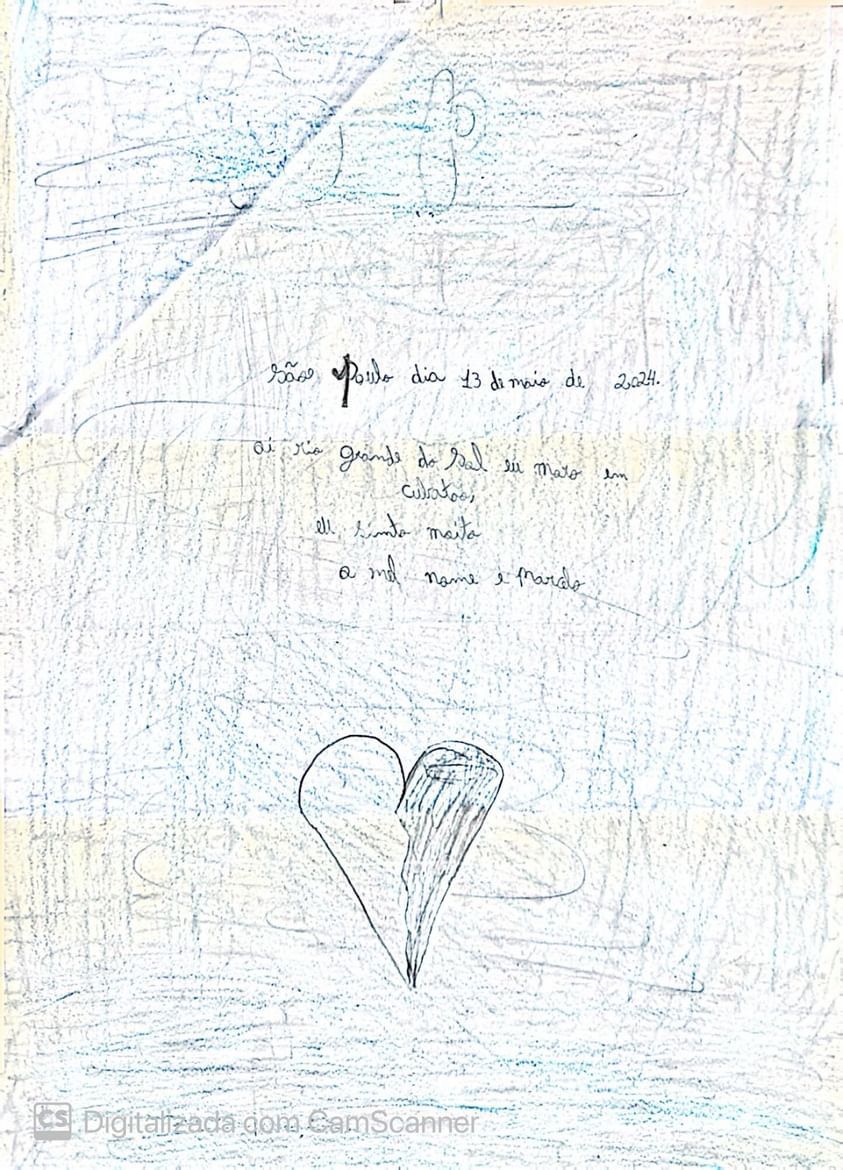 São Paulo dia 13 de maio de 2024.
oi rio grande do Sul eu moro em
cubatão,
eu sinto muito
o meu nome é Marcelo
Digitalizada com CamScanner